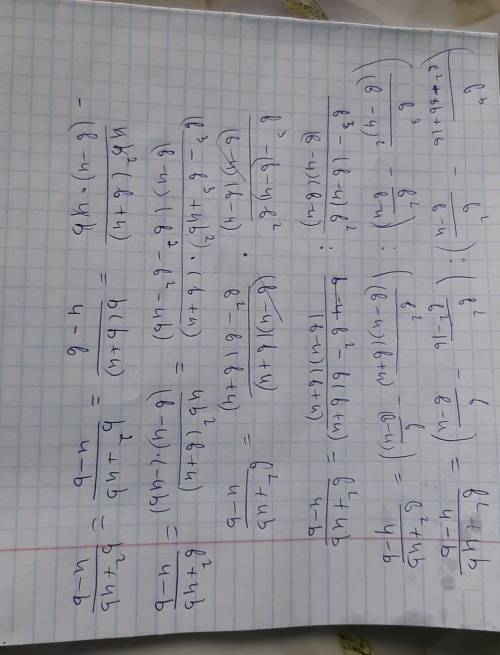 (b⁴/(b² - 8b + 16) - b²/(b - 4)) : (b²/(b² - 16) - b/(b - 4)) = (b² + 4b)/(4 - b)
(b³/(b - 4)² - b²/(b - 4)) : (b²/((b - 4)(b + 4)) - b/(b - 4)) = (b² + 4b)/(4 - b)
(b³ - (b - 4)b²)/((b - 4)(b - 4)) : (b² - b(b + 4))/((b - 4)(b + 4)) = (b² + 4b)/(4 - b)
(b³ - (b - 4)b²)/((b - 4)(b - 4)) · ((b - 4)(b + 4))/(b² - b(b + 4)) = (b² + 4b)/(4 - b)
((b³ - b³ + 4b²) · (b + 4))/((b - 4)(b² - b² - 4b)) = (4b²(b + 4))/((b - 4) · (-4b)) = (b² + 4b)/(4 - b)
- (4b²(b + 4))/((b - 4) · 4b) = (b(b + 4))/(4 - b) = (b² + 4b)/(4 - b) = (b² + 4b)/(4 - b)